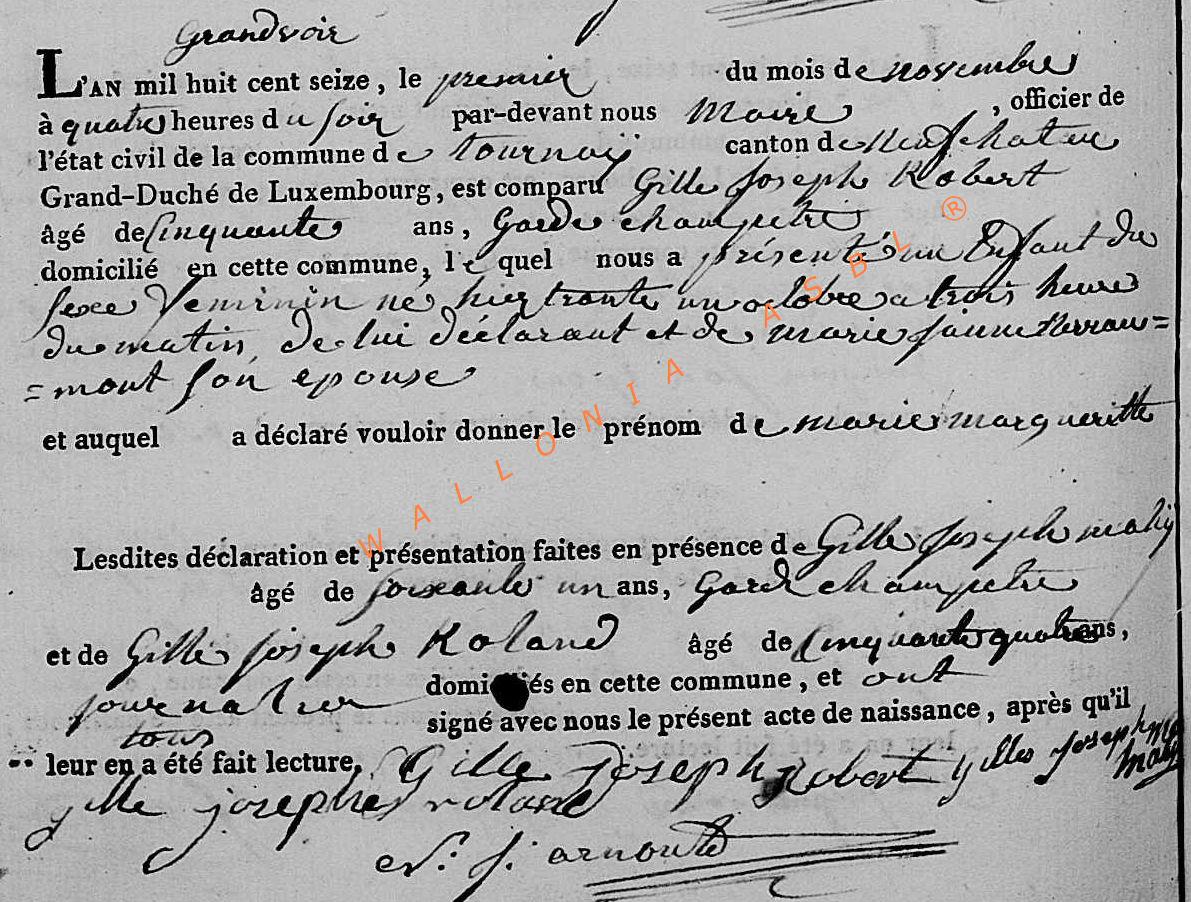 Grandvoir
L'AN mil huit cent seize, le premier du mois de novembre
à quatre heures du soir par-devant nous Maire, officier de
l'état civil de la commune de tournay canton de Neufchateau
Grand-Duché de Luxembourg, est comparu Gille Joseph Robert
âgé de Cinquante ans, Garde champetre
domicilié en cette commune, le quel nous a présenté un Enfant du
sexe Feminin né hier trante un octobre a trois heure
du matin, de lui déclarant et de marie jeanne
=mont son epouse
et auquel a déclaré vouloir donner le prénom de marie margueritte
Lesdites déclaration et présentation faites en présence de Gille Joseph mahy
âgé de soixante un ans, Gard champetre
et de Gille joseph Roland âgé de Cinquante quatre ans,
journalier domiciliés en cette commune, et ont
tous signé avec nous le présent acte de naissance, après qu'il
leur en a été fait lecture. Gille Joseph Robert gilles Joseph
gille josephe roland
arnould
WALLONIA ASBL ®